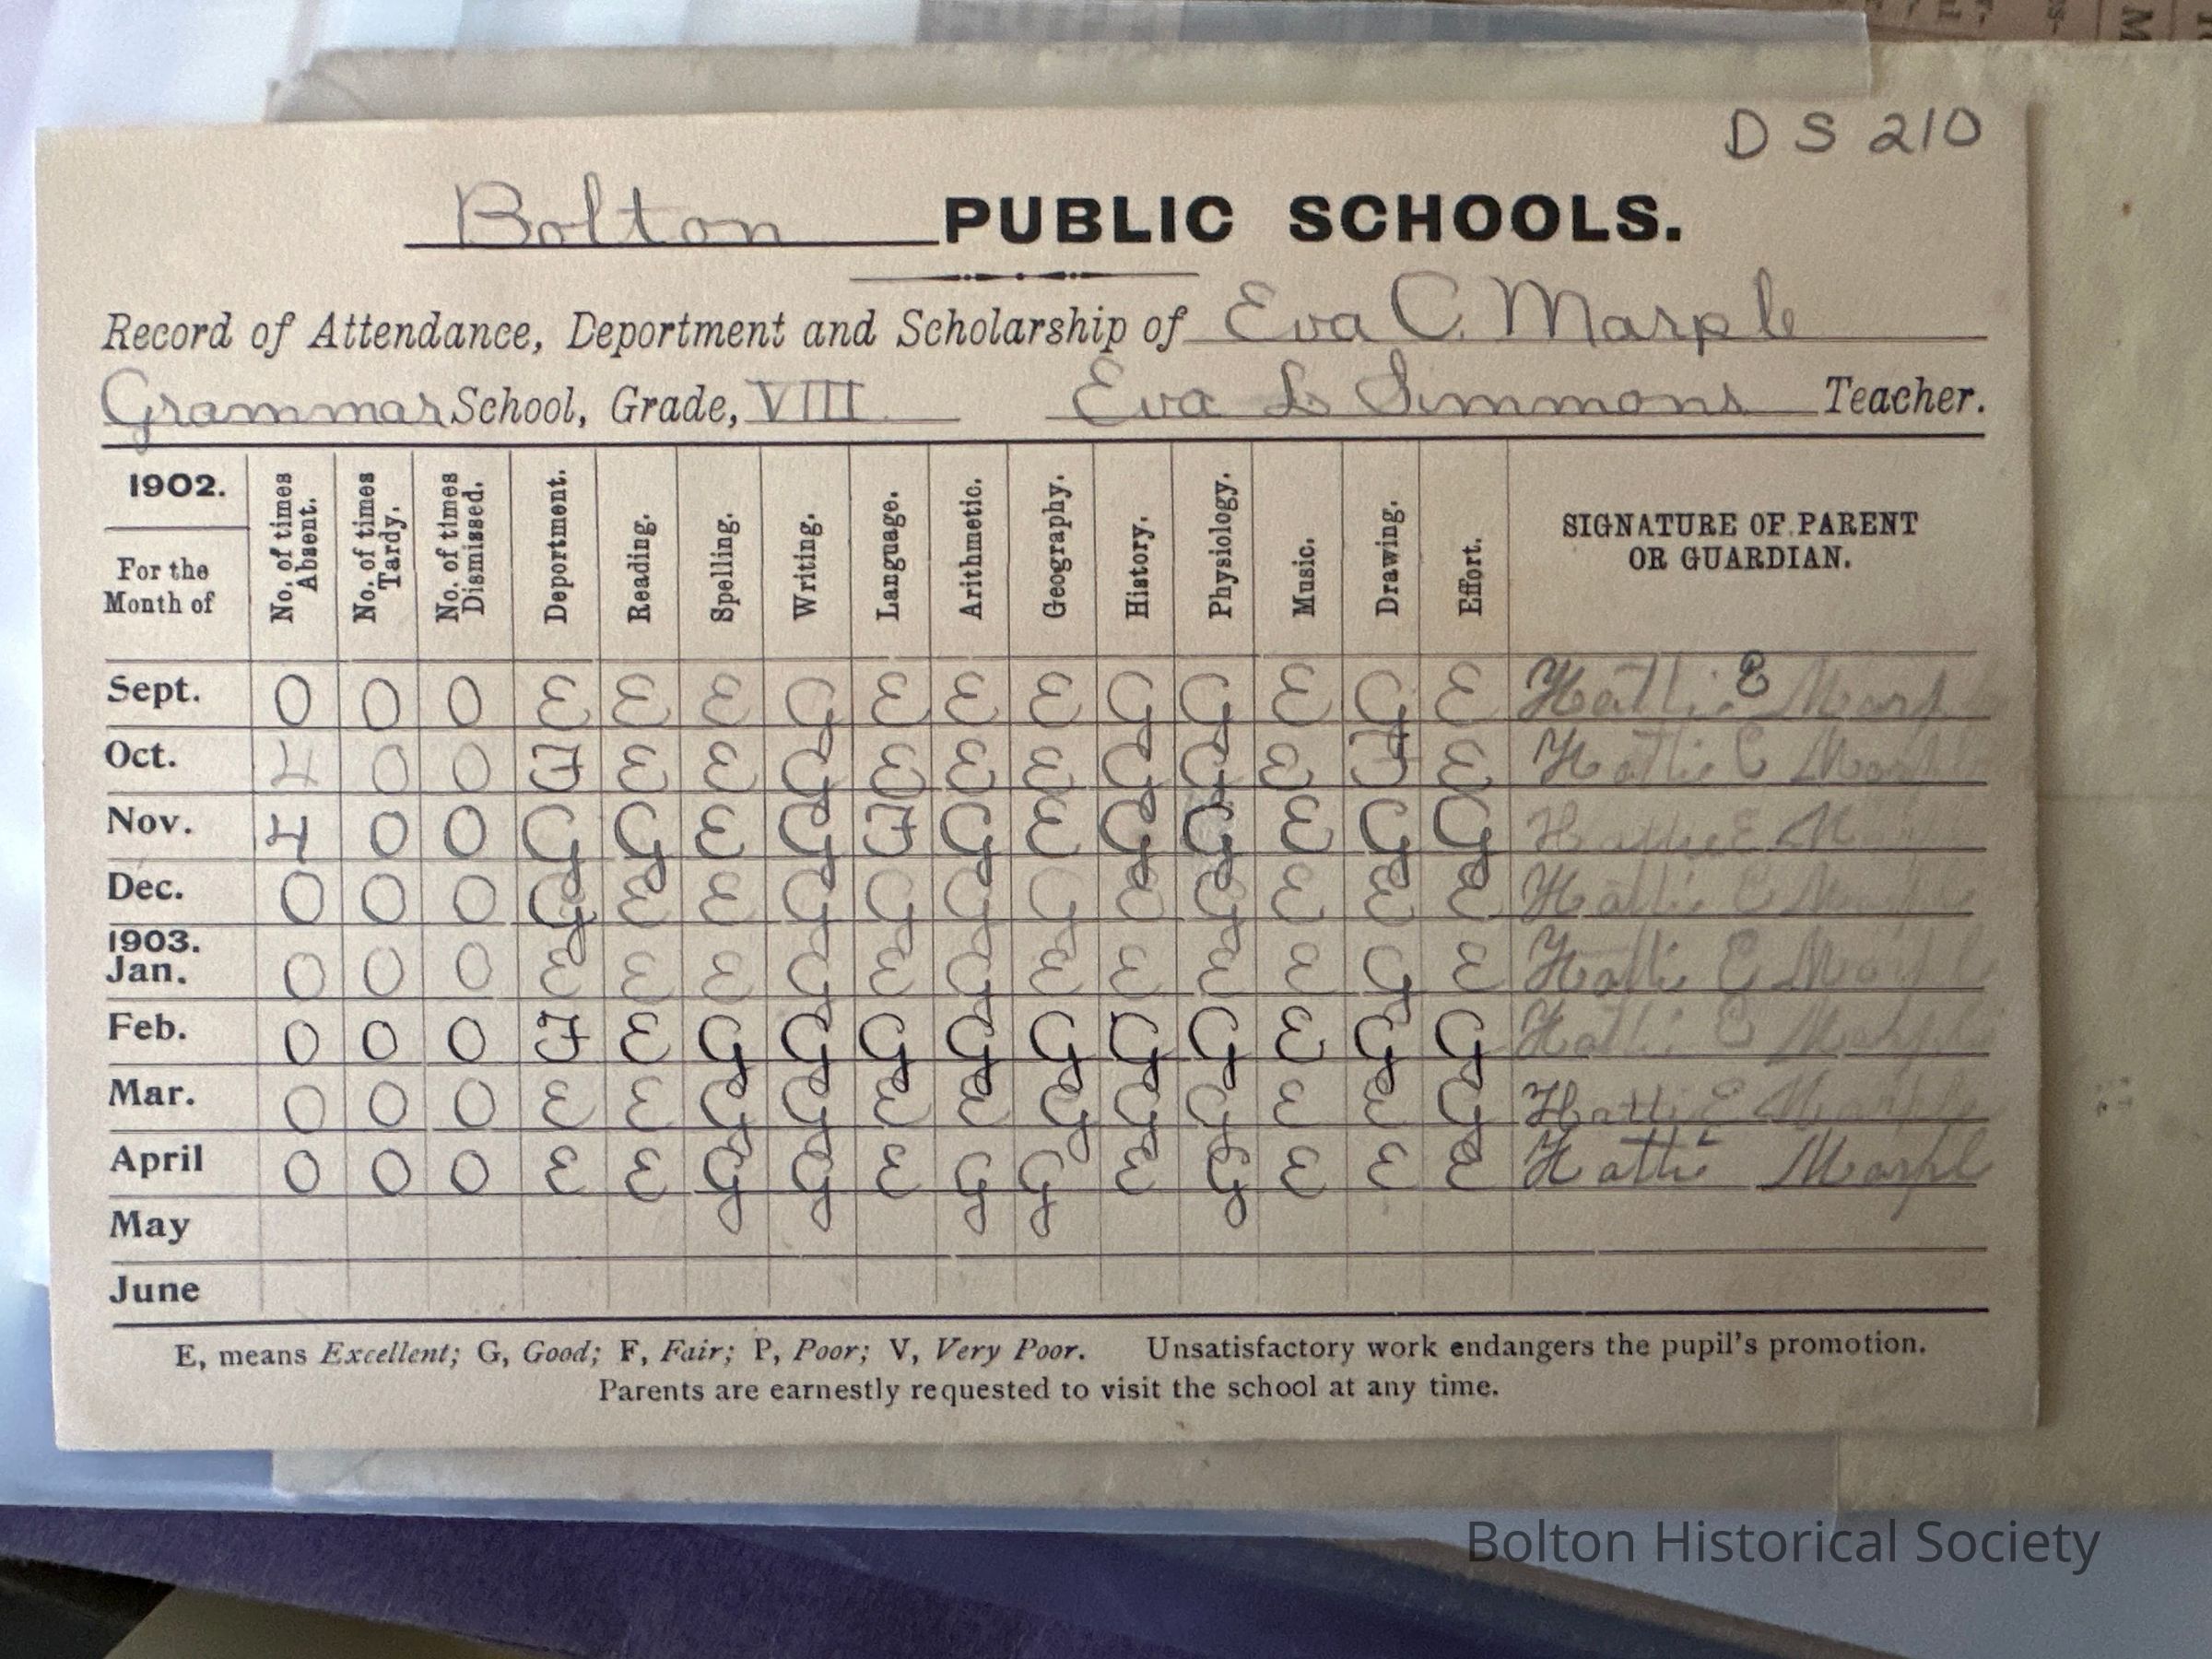 D S 210
Bolton PUBLIC SCHOOLS.
Record of Attendance, Deportment and Scholarship of Eva C. Marple
Grammar School, Grade, VIII Eva L Simmons Teacher.
1902. For the Month of No. of times Absent. No. of times Tardy. No. of times Dismissed. Deportment. Reading. Spelling. Writing. Language. Arithmetic. Geography. History. Physiology. Music. Drawing. Effort. SIGNATURE OF PARENT OR GUARDIAN.
Sept. 0 0 0 E E E G E E E G G E G E Hattie E Marpl
Oct. 4 0 0 F E E G E E E G G E F E Hattie E Marpl
Nov. 4 0 0 G G E G F G E G G E G G Hattie E M
Dec. 0 0 0 G E E G G G G E G E E E Hattie E Marple
1903.
Jan. 0 0 0 E E E G E G E E E E G E Hattie E Marpl
Feb. 0 0 0 F E G G G G G G G E G G Hattie E Marple
Mar. 0 0 0 E E G G E E G G G E E G Hattie E Marple
April 0 0 0 E E G G E G G E G E E E Hattie Marpl
May
June
E, means Excellent; G, Good; F, Fair; P, Poor; V, Very Poor. Unsatisfactory work endangers the pupil's promotion.
Parents are earnestly requested to visit the school at any time.
Bolton Historical Society